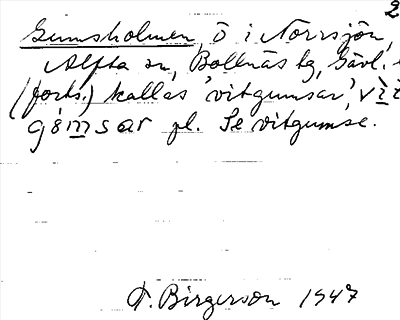 2
Gumsholmen, ö i Norrsjön,
Alfta sn, Bollnäs tg, Gävl.
(forts.) kallas 'vitgumsar', vìt
gómsar pl. Se vitgumse.
T. Birgerson 1947